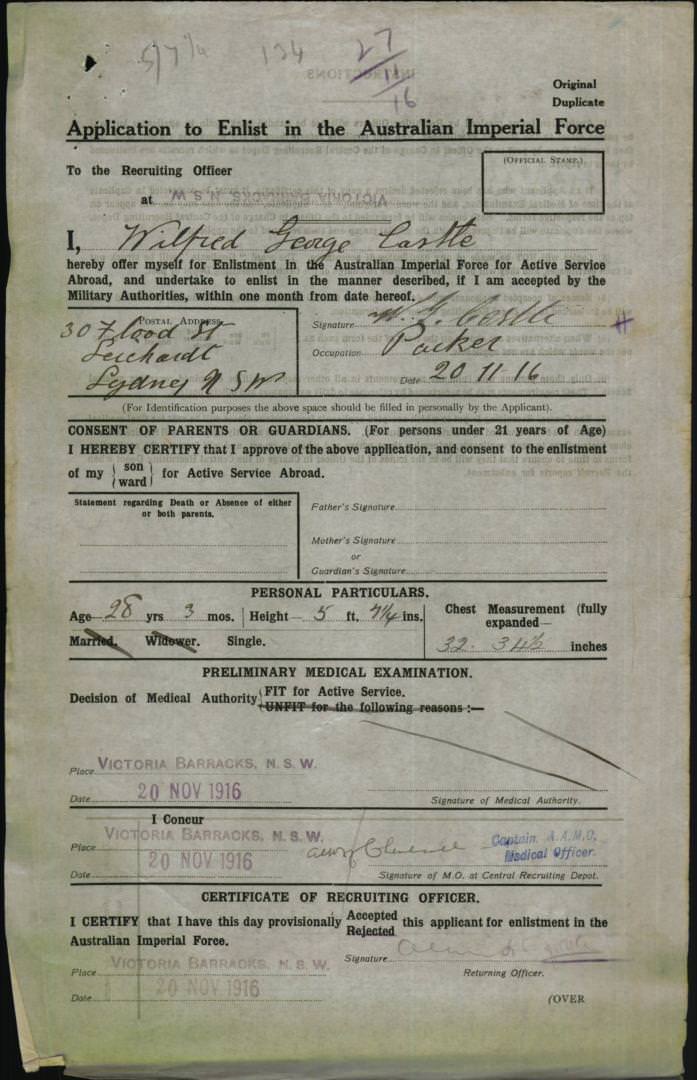 5/7 1/4 134 27/11/16
Original
Duplicate
Application to Enlist in the Australian Imperial Force
To the Recruiting Officer
(OFFICIAL STAMP.)
at VICTORIA BARRACKS, N.S.W.
I, Wilfred George Castle
hereby offer myself for Enlistment in the Australian Imperial Force for Active Service
Abroad, and undertake to enlist in the manner described, if I am accepted by the
Military Authorities, within one month from date hereof.
POSTAL ADDRESS
30 Flood St
Leichardt
Sydney N S W
Signature W. G. Castle
Occupation Packer
Date 20 11 16
(For Identification purposes the above space should be filled in personally by the Applicant).
CONSENT OF PARENTS OR GUARDIANS. (For persons under 21 years of Age)
I HEREBY CERTIFY that I approve of the above application, and consent to the enlistment
of my { son ward } for Active Service Abroad.
Statement regarding Death or Absence of either
or both parents.
Father's Signature
Mother's Signature
or
Guardian's Signature
PERSONAL PARTICULARS.
Age 28 yrs 3 mos. Height 5 ft. 7 1/4 ins.
Chest Measurement (fully
expanded—
Married. Widower. Single.
32. 34½ inches
PRELIMINARY MEDICAL EXAMINATION.
Decision of Medical Authority { FIT for Active Service.
UNFIT for the following reasons :—
Place VICTORIA BARRACKS, N.S.W.
Date 20 NOV 1916
Signature of Medical Authority.
I Concur
Place VICTORIA BARRACKS, N.S.W.
Captain. A.A.M.C.
Medical Officer.
Date 20 NOV 1916
Signature of M.O. at Central Recruiting Depot.
CERTIFICATE OF RECRUITING OFFICER.
I CERTIFY that I have this day provisionally Accepted Rejected this applicant for enlistment in the
Australian Imperial Force.
Signature
Place VICTORIA BARRACKS, N.S.W.
Returning Officer.
Date 20 NOV 1916
(OVER